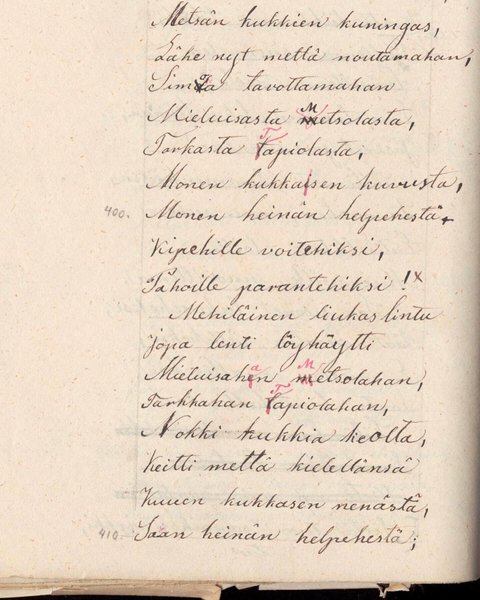 Metsän kukkien kuningas,
Lähe nyt mettä noutamahan,
Simoa tavottamahan
Mieluisasta Metsolasta,
Tarkasta Tapiolasta,
Monen kukkaisen kuvusta,
400. Monen heinän helpehestä
Kipehille voitehiksi,
Pahoille parantehiksi! x
Mehiläinen liukas lintu
Jopa lenti löyhäytti
Mieluisahan Metsolahan,
Tarkkahan Tapiolahan,
Nokki kukkia keolta,
Keitti mettä kielellänsä
Kuuen kukkasen nenästä,
410. Saan heinän helpehestä;